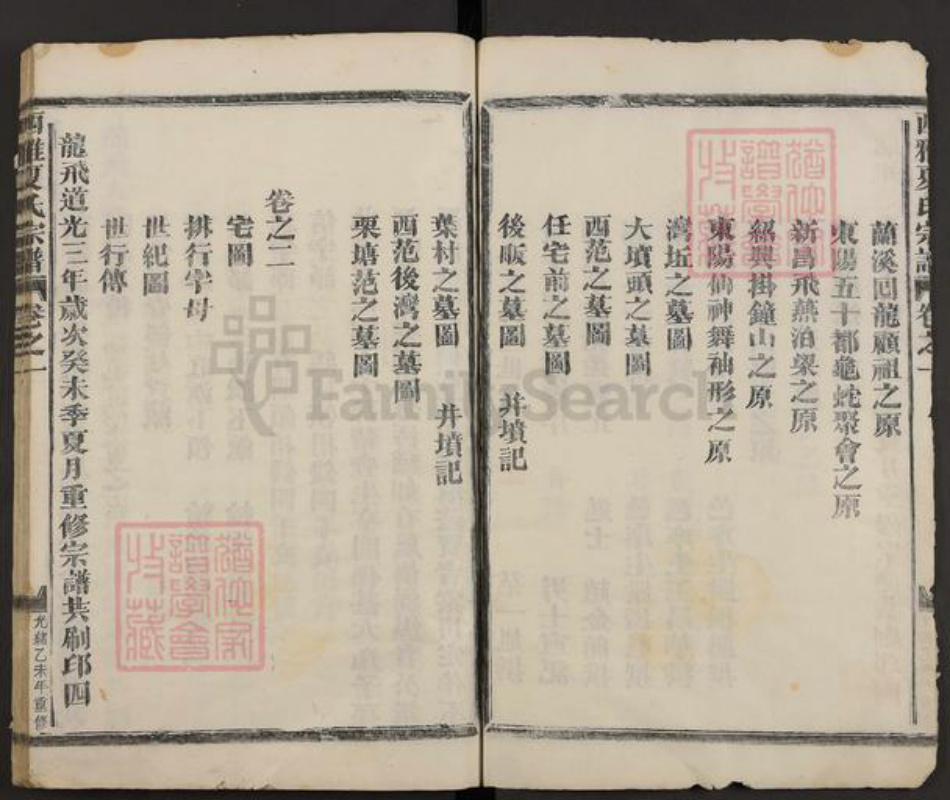 蘭溪回龍顧祖之原
東陽五十都龜蛇聚會之原
新昌飛燕泊梁之原
紹興掛鐘山之原
東陽仙神舞袖形之原
灣坵之墓圖
大墳頭之墓圖
西范之墓圖
任宅前之墓圖
後畈之墓圖 并墳記
葉村之墓圖 并墳記
西范後灣之墓圖
栗塘范之墓圖
卷之二
宅圖
排行字母
世紀圖
世行傳
龍飛道光三年歲次癸未季夏月重修宗譜共刷印四
西雅夏氏宗譜 卷之一
光緒乙未年重修
FamilySearch